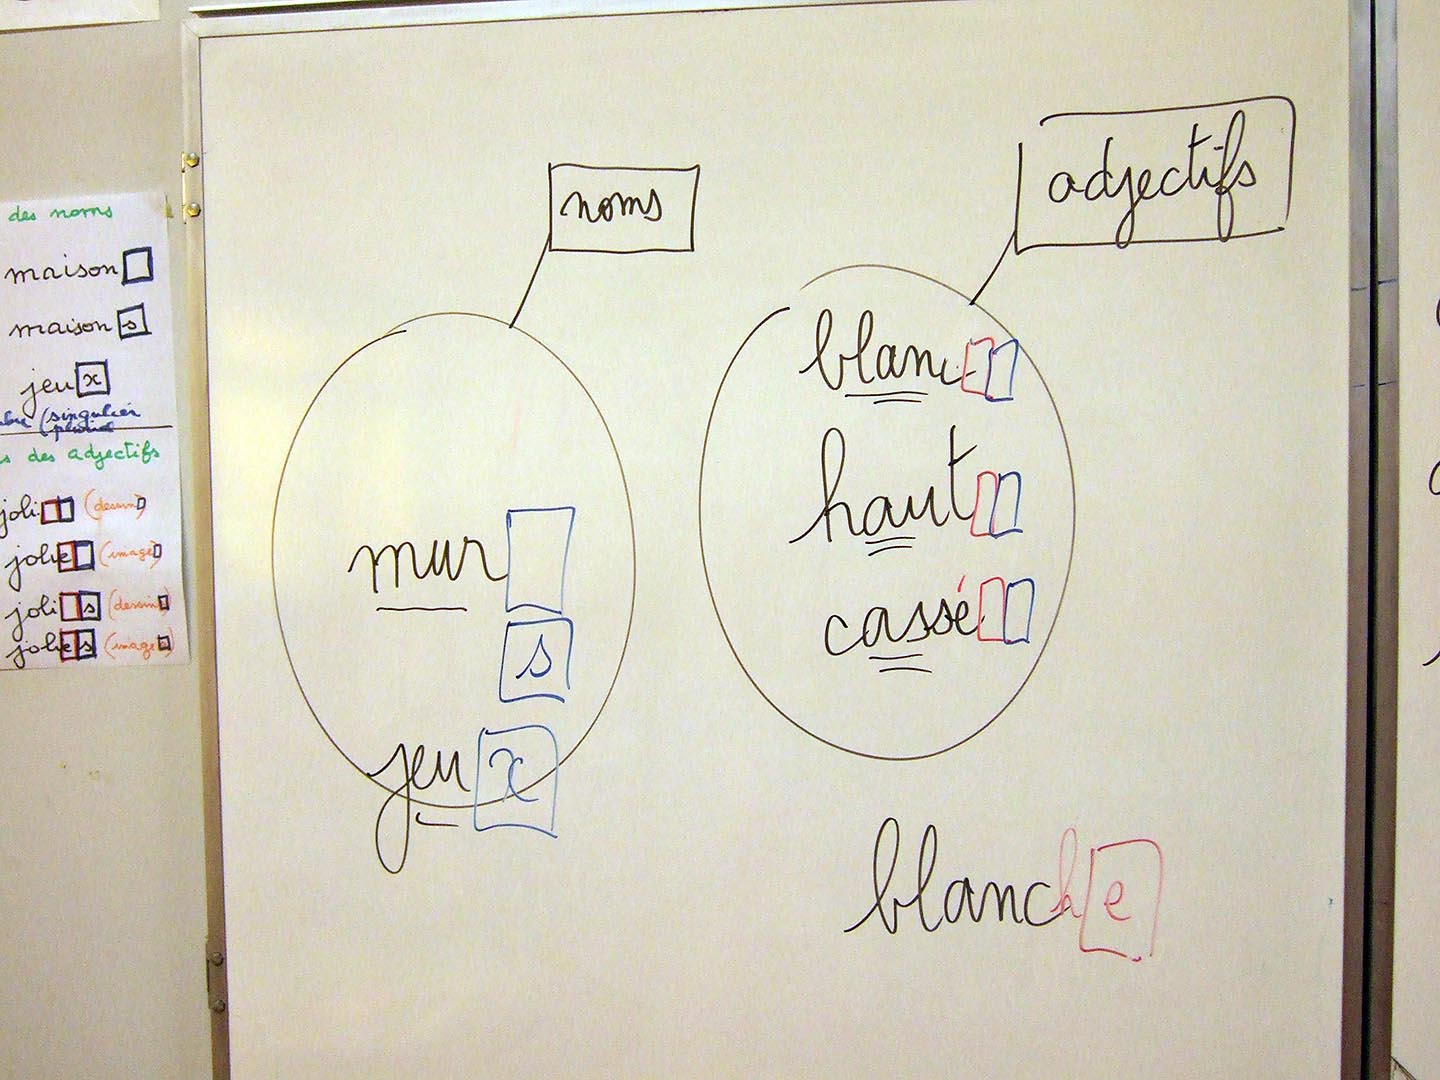 des noms
maison
maison s
jeu x
(singulier
pluriel
des adjectifs
joli (dessin)
jolie (image)
joli s (dessin)
jolies (image)
noms
mur
s
jeu x
adjectifs
blanc
haut
cassé
blanche